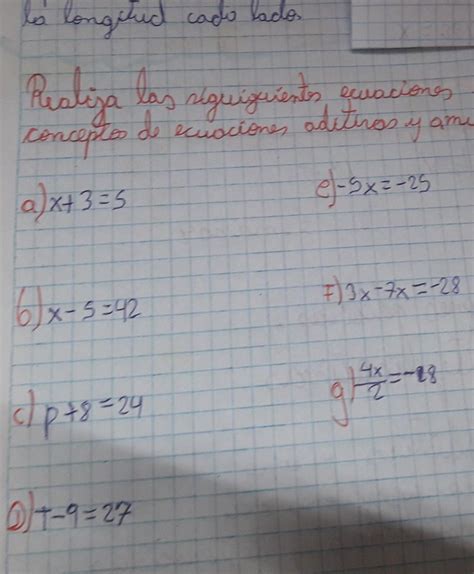 la longitud cado lado.
Realiza las siguiguientes ecuaciones
conceptos de ecuaciones aditivas y
a) x+3=5
b) x-5=42
c) p+8=24
D) T-9=27
e) -5x=-25
F) 3x-7x=-28
g) 4x/2=-18